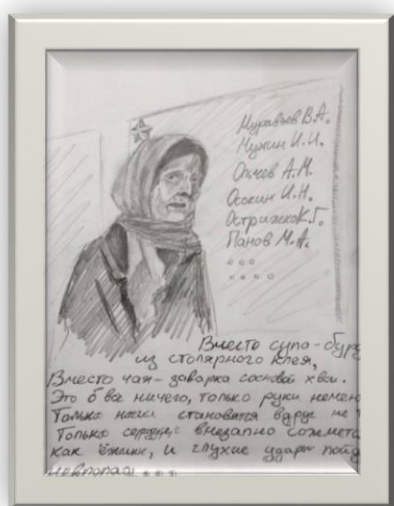 Муравьев В.А.
Мухин И.И.
Окнев А.М.
Осокин И.Н.
Острижко К.Г.
Панов М.А.
Вместо супа - бурд
из столярного клея,
Вместо чая - заварка сосновой хвои.
Это б всё ничего, только руки немею
Только ноги становятся вдруг не т
Только сердце внезапно сожметс
как ёжик, и глухие удары пойд
невпопад....